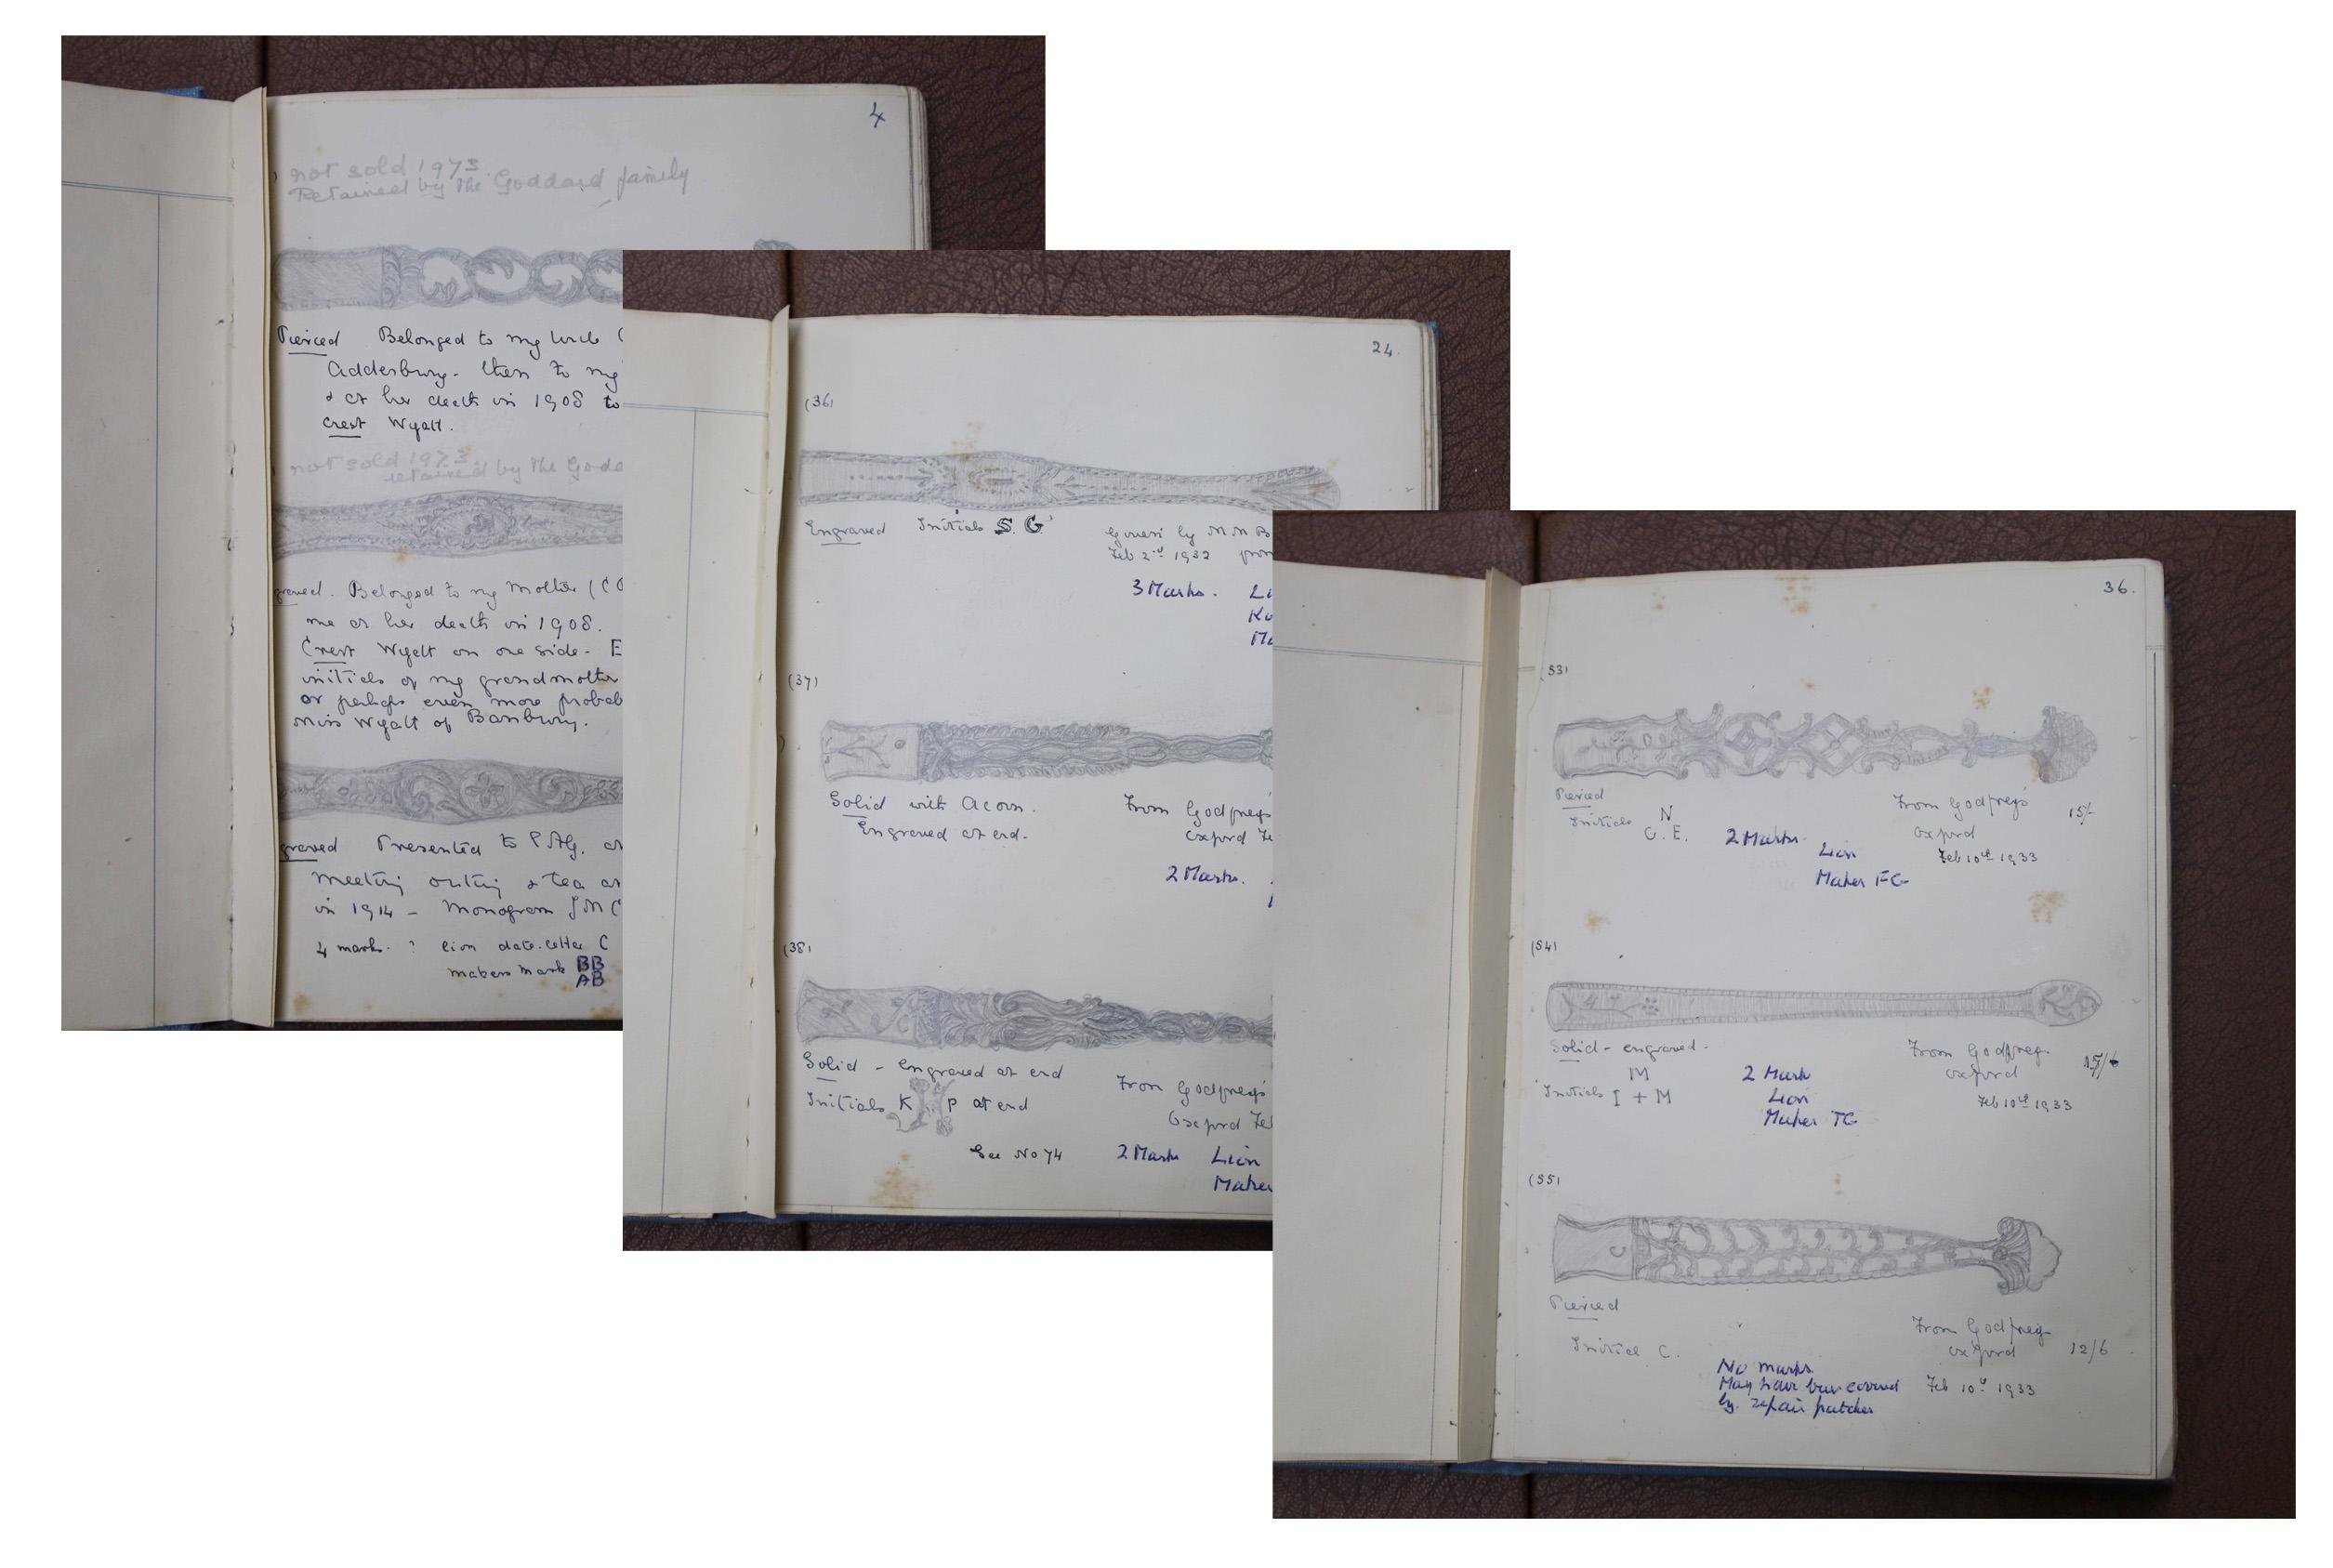 4
not sold 1973.
Retained by the Goddard family
Pierced Belonged to my Uncle (
Adderbury - then to my
& at her death in 1908 to
Crest Wyatt.
not sold 1973.
retained by the Godda
graved. Belonged to my Mother (C
me at her death in 1908.
Crest Wyatt on one side - E
initials of my grandmother
or perhaps even more probab
Miss Wyatt of Banbury.
graved Presented to
meeting outing & tea at
in 1914 - Monogram JMC
4 marks. ? lion date-letter C
makers mark BB
AB
24.
(36)
Engraved Initials S. G.
Given by M M B
Feb 2nd 1932 from
3 Marks. Li
Ma
(37)
Solid with Acorn.
Engraved at end.
From Godfrey's
Oxford Fe
2 Marks.
(38)
Solid - engraved at end
Initials K P at end
From Godfrey's
Oxford Feb
See No 74
2 Marks Lion
Maker
36.
(53)
Pierced
Initials N
C. E.
2 Marks.
Lion
Maker FC
From Godfrey's
Oxford
Feb 10th 1933
15/-
(54)
Solid - engraved -
M
Initials I + M
2 Mark
Lion
Maker TC
From Godfrey
Oxford
Feb 10th 1933
(55)
Pierced
Initial C.
No marks
May have been covered
by repair patches
From Godfrey
Oxford
12/6
Feb 10th 1933